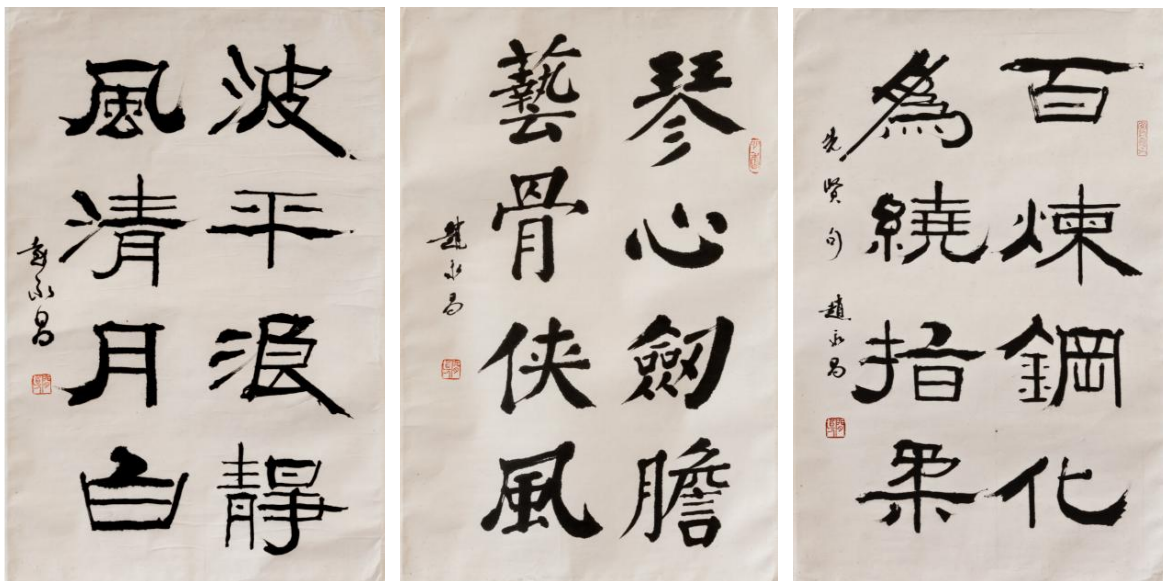 波平浪靜
風清月白
趙永昌
琴心劍膽
藝骨侠風
趙永昌
百煉鋼化
為繞指柔
先贤句
趙永昌